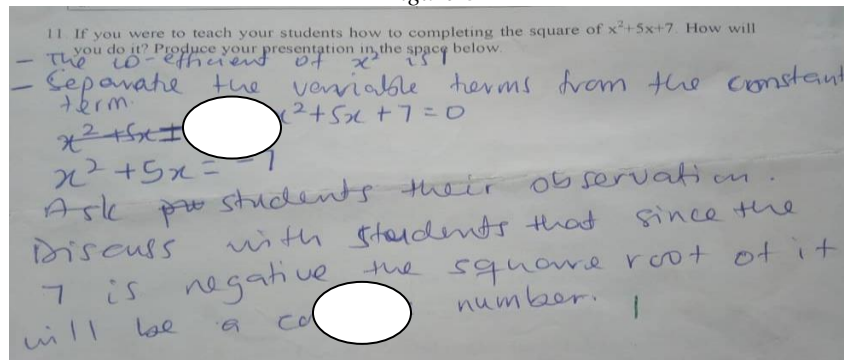 11. If you were to teach your students how to completing the square of x²+5x+7. How will
you do it? Produce your presentation in the space below.
- The co-efficient of x² is 1
- Separate the variable terms from the constant
term.
x²+5x+7=0
x²+5x= -7
Ask students their observation.
Discuss with students that since the
7 is negative the square root of it
will be a number. 1